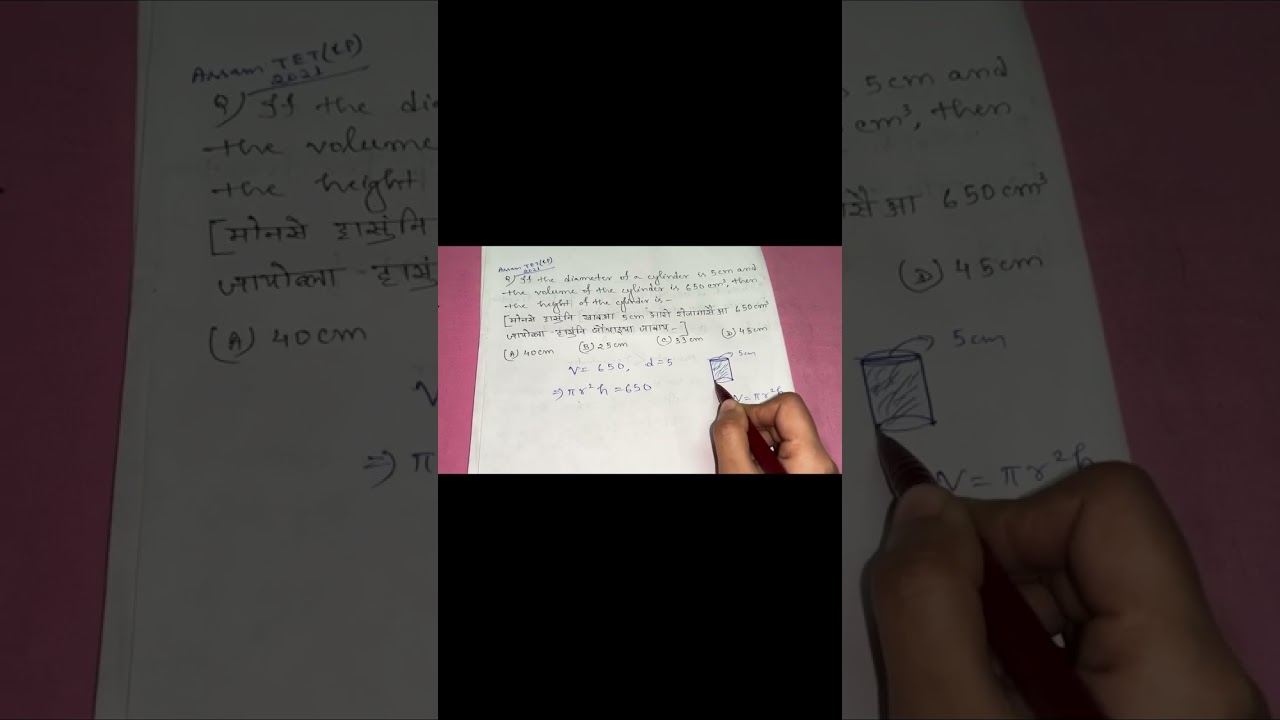 Assam TET(LP)
2021
Q) If the diameter of a cylinder is 5cm and
the volume of the cylinder is 650 cm³, then
the height of the cylinder is -
[मोनसे हासुंनि खाबआ 5cm आरो रोजागासैआ 650cm³
जायोब्ला हासुंनि जौथाइया जाबाय -]
(A) 40cm (B) 25cm (C) 33cm (D) 45cm
V = 650, d = 5
5cm
⇒ πr²h = 650
V = πr²h